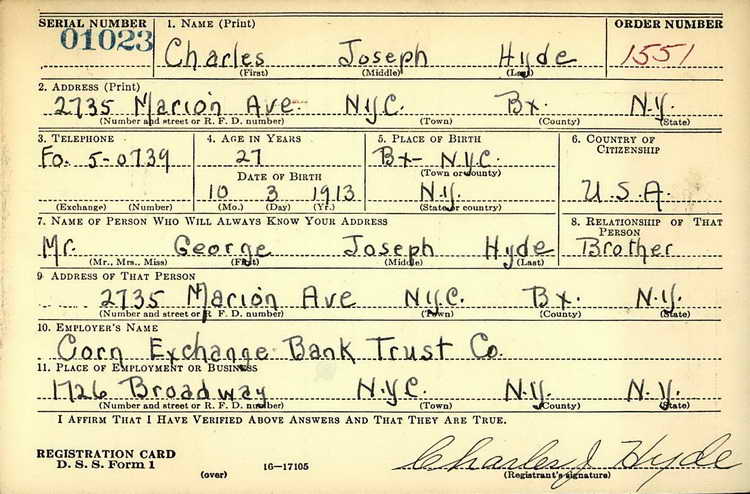 SERIAL NUMBER 1. NAME (Print) ORDER NUMBER
01023 Charles Joseph Hyde 1551
(First) (Middle) (Last)
2. ADDRESS (Print)
2735 Marion Ave. N.Y.C. Bx. N.Y.
(Number and street or R. F. D. number) (Town) (County) (State)
3. TELEPHONE 4. AGE IN YEARS 5. PLACE OF BIRTH 6. COUNTRY OF CITIZENSHIP
Fo. 5-0739 27 Bx- N.Y.C.
DATE OF BIRTH (Town or county)
10 3 1913 N.Y. U.S.A.
(Exchange) (Number) (Mo.) (Day) (Yr.) (State or country)
7. NAME OF PERSON WHO WILL ALWAYS KNOW YOUR ADDRESS 8. RELATIONSHIP OF THAT PERSON
Mr. George Joseph Hyde Brother
(Mr., Mrs., Miss) (First) (Middle) (Last)
9. ADDRESS OF THAT PERSON
2735 Marion Ave N.Y.C. Bx. N.Y.
(Number and street or R. F. D. number) (Town) (County) (State)
10. EMPLOYER'S NAME
Corn Exchange Bank Trust Co.
11. PLACE OF EMPLOYMENT OR BUSINESS
1726 Broadway N.Y.C. N.Y. N.Y.
(Number and street or R. F. D. number) (Town) (County) (State)
I AFFIRM THAT I HAVE VERIFIED ABOVE ANSWERS AND THAT THEY ARE TRUE.
REGISTRATION CARD
D. S. S. Form 1 (over) 16-17105 Charles J Hyde
(Registrant's signature)